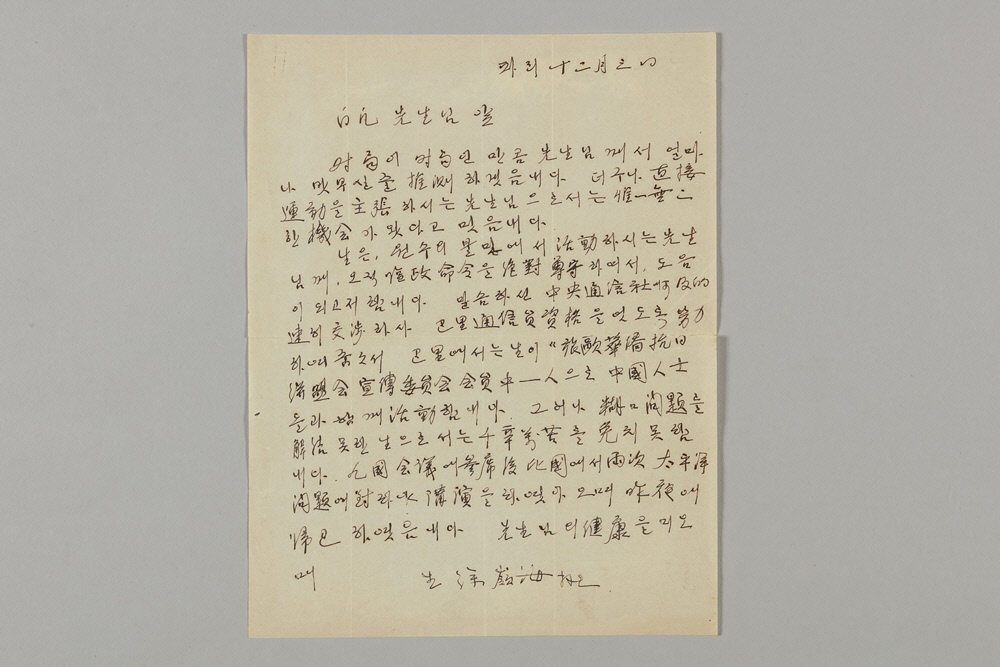 파리 十二月 三日
白凡 先生님 앞
時局이 時局인 만콤 先生님께서 얼마
나 밧부실줄 推測하겟음내다. 더구나 直接
運動을 主張하시는 先生님으로서는 惟一無二
한 機会가 왓다고 밋음내다.
생은, 원수의 에서 活動하시는 先生
님께, 오직 臨政命令을 絶對 尊守하여서, 도음
이 되고저 함내다. 말슴하신 中央通信社에 及的
速히 交涉하사 巴里通信員資格을 엇도록 努力
하여 줍소서 巴里에서는 생이 "旅歐華僑抗日
聯盟会宣傳委員会 会員中 一人으로 中國人士
들과 함께 活動함내다. 그러나 糊口問題를
解决못된 생으로서는 千辛萬苦를 免치 못함
내다. 九國会議에 參席後 比國에서 兩次 太平洋
問題에 對하야 講演을 하엿아오며 昨夜에
帰巴 하엿음내다 先生님의 健康을 비오
며 生 徐嶺海 拜上